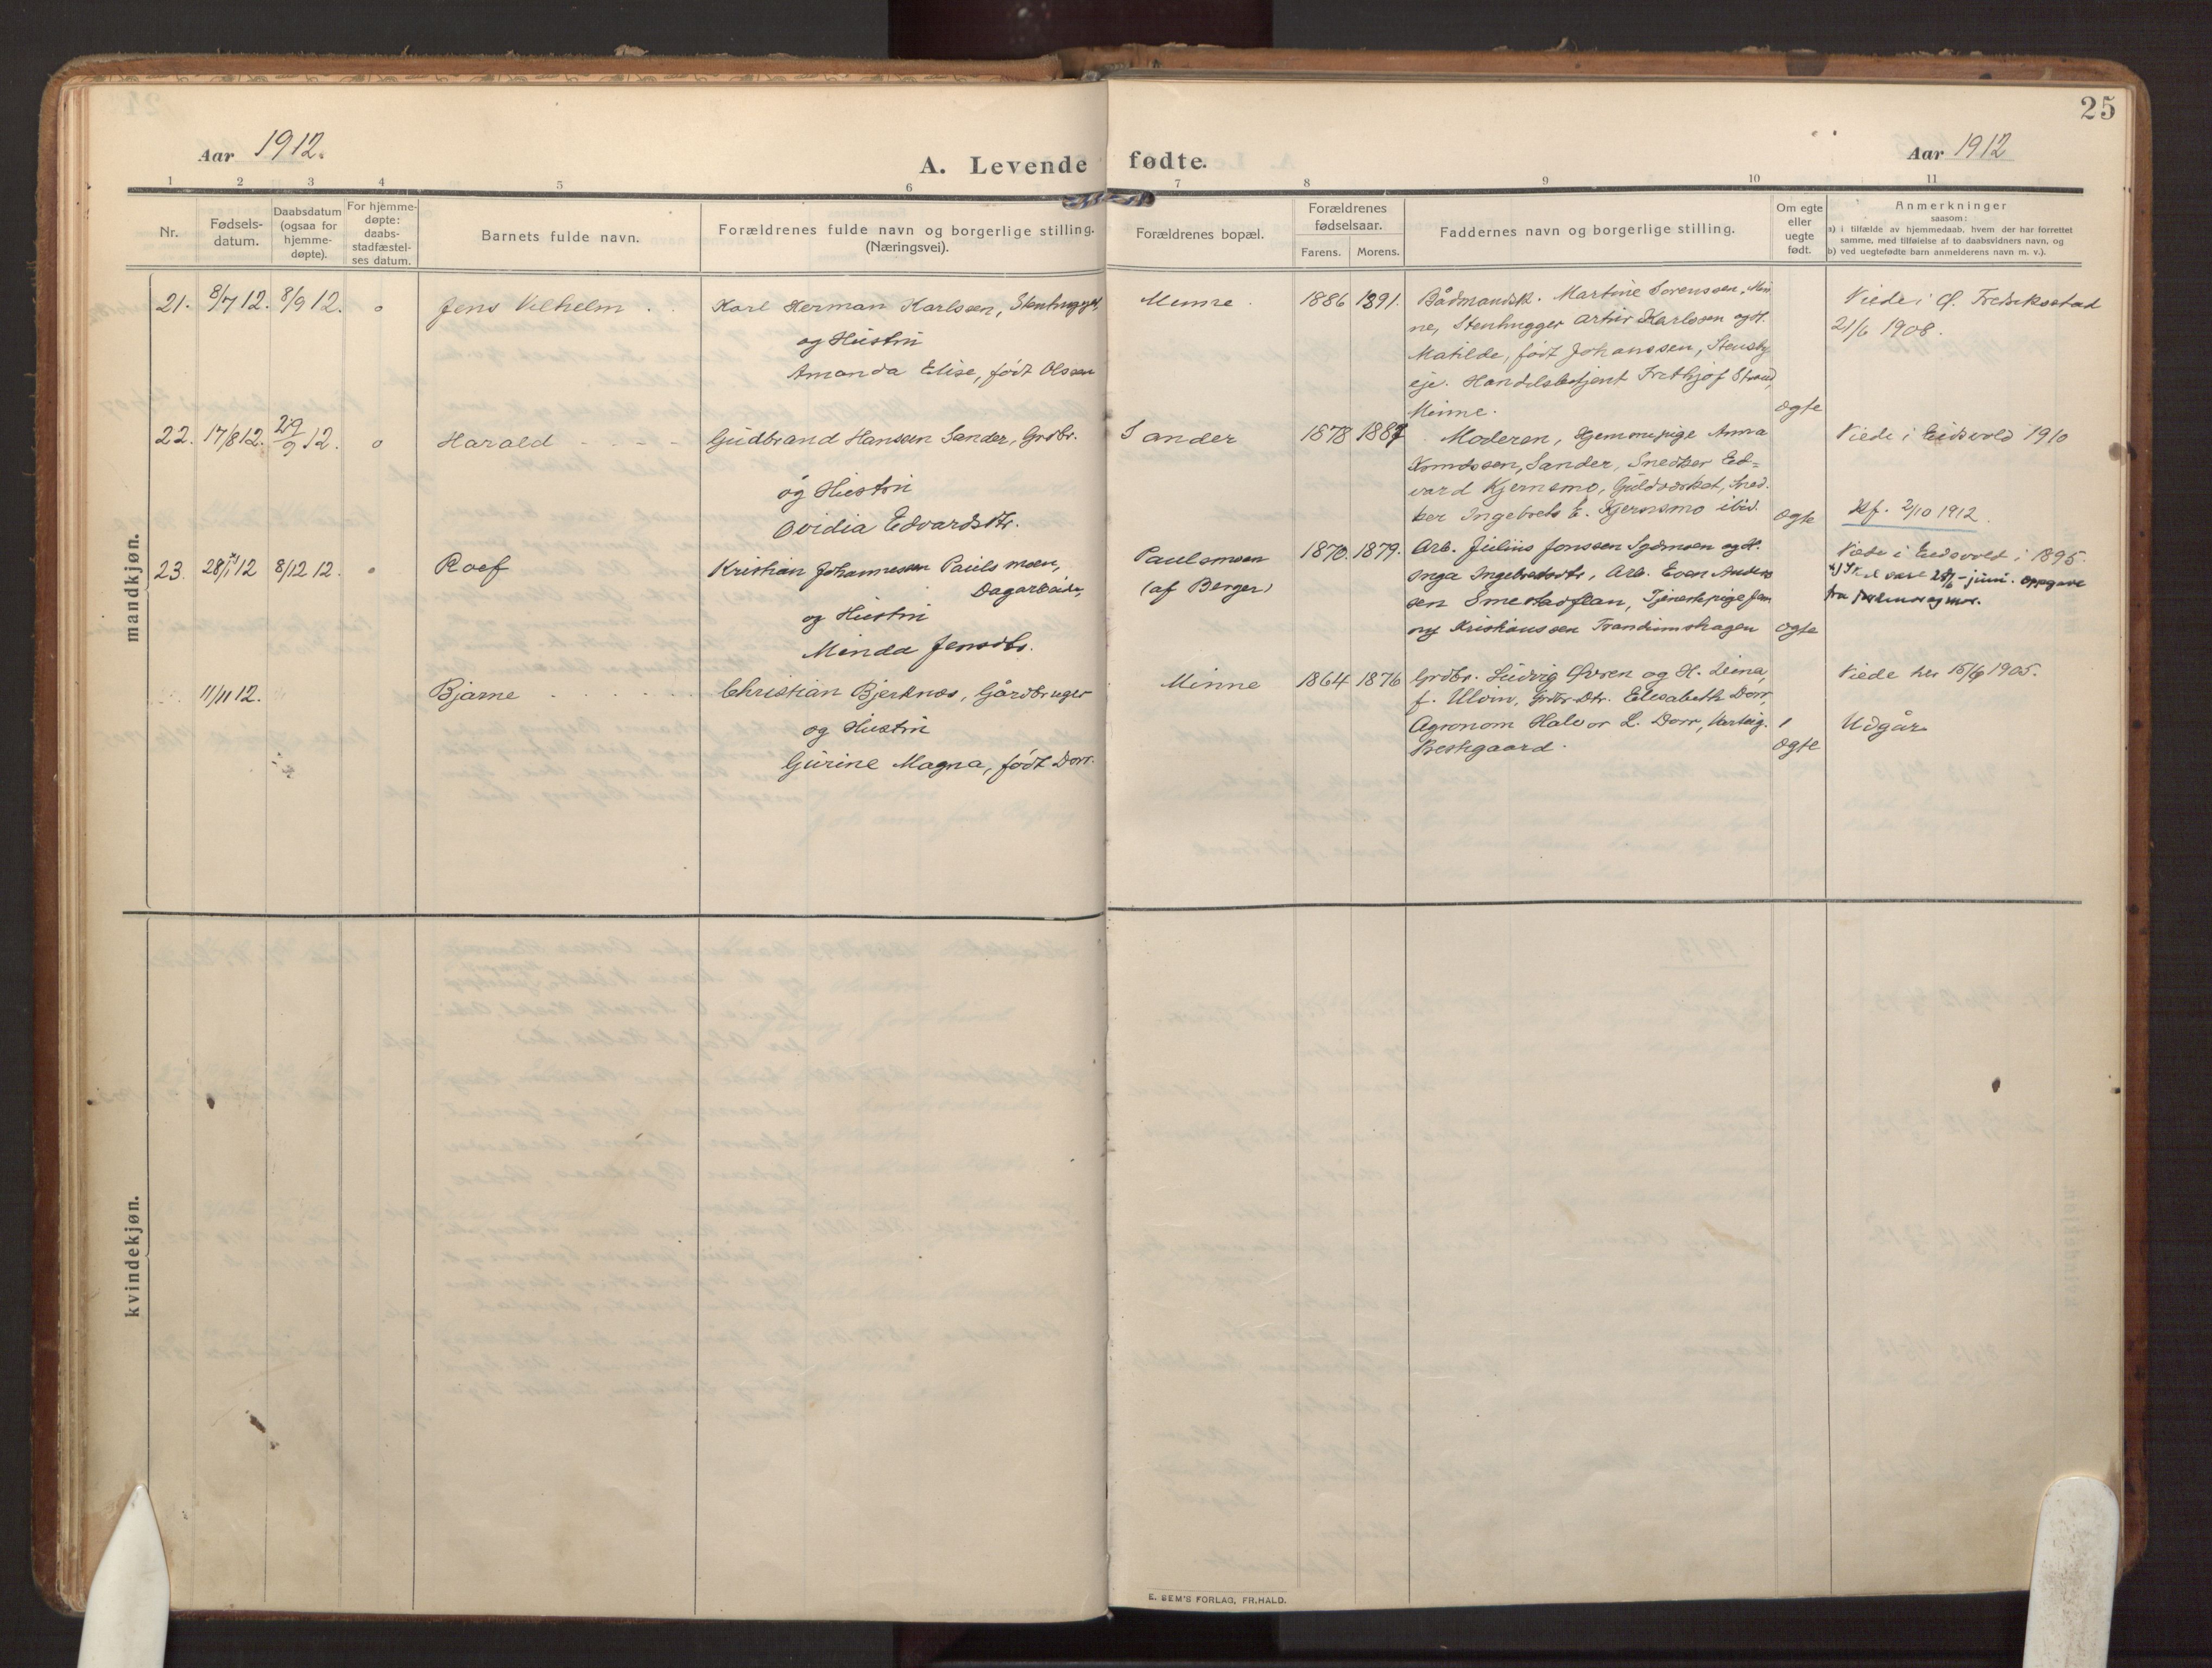 25
Aar 1912.
A. Levende fødte.
Aar 1912
1 2 3 4 5 6 7 8 9 10 11
Nr.
Fødsels-
datum.
Daabsdatum
(ogsaa for
hjemme-
døpte).
For hjemme-
døpte:
daabs-
stadfæstel-
ses datum.
Barnets fulde navn.
Forældrenes fulde navn og borgerlige stilling.
(Næringsvei).
Forældrenes bopæl.
Forældrenes
fødselsaar.
Farens. Morens.
Faddernes navn og borgerlige stilling.
Om egte
eller
uegte
født.
Anmerkninger
saasom:
a) i tilfælde av hjemmedaab, hvem der har forrettet
samme, med tilføielse af to daabsvidners navn, og
b) ved uegtefødte barn anmelderens navn m. v.).
mandkjøn.
21. 8/7 12. 8/9 12. o Jens Vilhelm
Karl Herman Karlssen, Stenhugger,
og Hustru
Amanda Elise, født Olssen
Minne. 1886 1891.
Bådmandsk. Martine Sorenssen, Min
ne, Stenhugger Artur Karlssen og H.
Matilde, født Johanssen, Stensby
eje. Handelsbetjent Frithjof Strand,
Minne.
Ogte
Viede i Ø. Fredrikstad
21/6 1908.
22. 17/8 12. 29/9 12. o Harald
Gudbrand Hansen Sander, Grdbr.
og Hustru
Ovidia Edvardsdtr.
Sander 1878 1887
Moderen, Hjemmepige Anna
Knudssen, Sander, Snedker Ed=
vard Kjernsmo, Guldværket, Sned.
ker Ingebret E. Kjernsmo ibid.
Ogte
Viede i Eidsvold 1910
Af. 2/10 1912.
23. 28/1 x 12 8/12 12. o Roef
Kristian Johannesen Pauls moen,
Dagarbeider,
og Hustru
Minda Jensdtr.
Paulsmoen
(af Berger)
1870. 1879.
Arb. Julius Jonssen Sydmoen og H.
Inga Ingebredsdtr, Arb. Even Anders
sen Smestadflan, Tjenestepige Jen
ny Kristianssen Trandumshagen
Ogte
Viede i Eidsvold i 1895.
x) Skal være 28/6 - juni. Oppgave
fra far og mor.
11/11 12. Bjarne
Christian Bjerknæs, Gårdbruger
og Hustru
Gurine Magna, født Dorr.
Minne 1864 1876
Grdbr. Ludvig Øvren og H. Lina,
f. Ulvin, Grdbr. Dtr. Elisabeth Dorr,
Agronom Halvor L. Dorr, Varteig.
Prestgaard.
Ogte
Viede her 15/6 1905.
Udgår
kvindekjøn.
E. SEM'S FORLAG, FR.HALD.